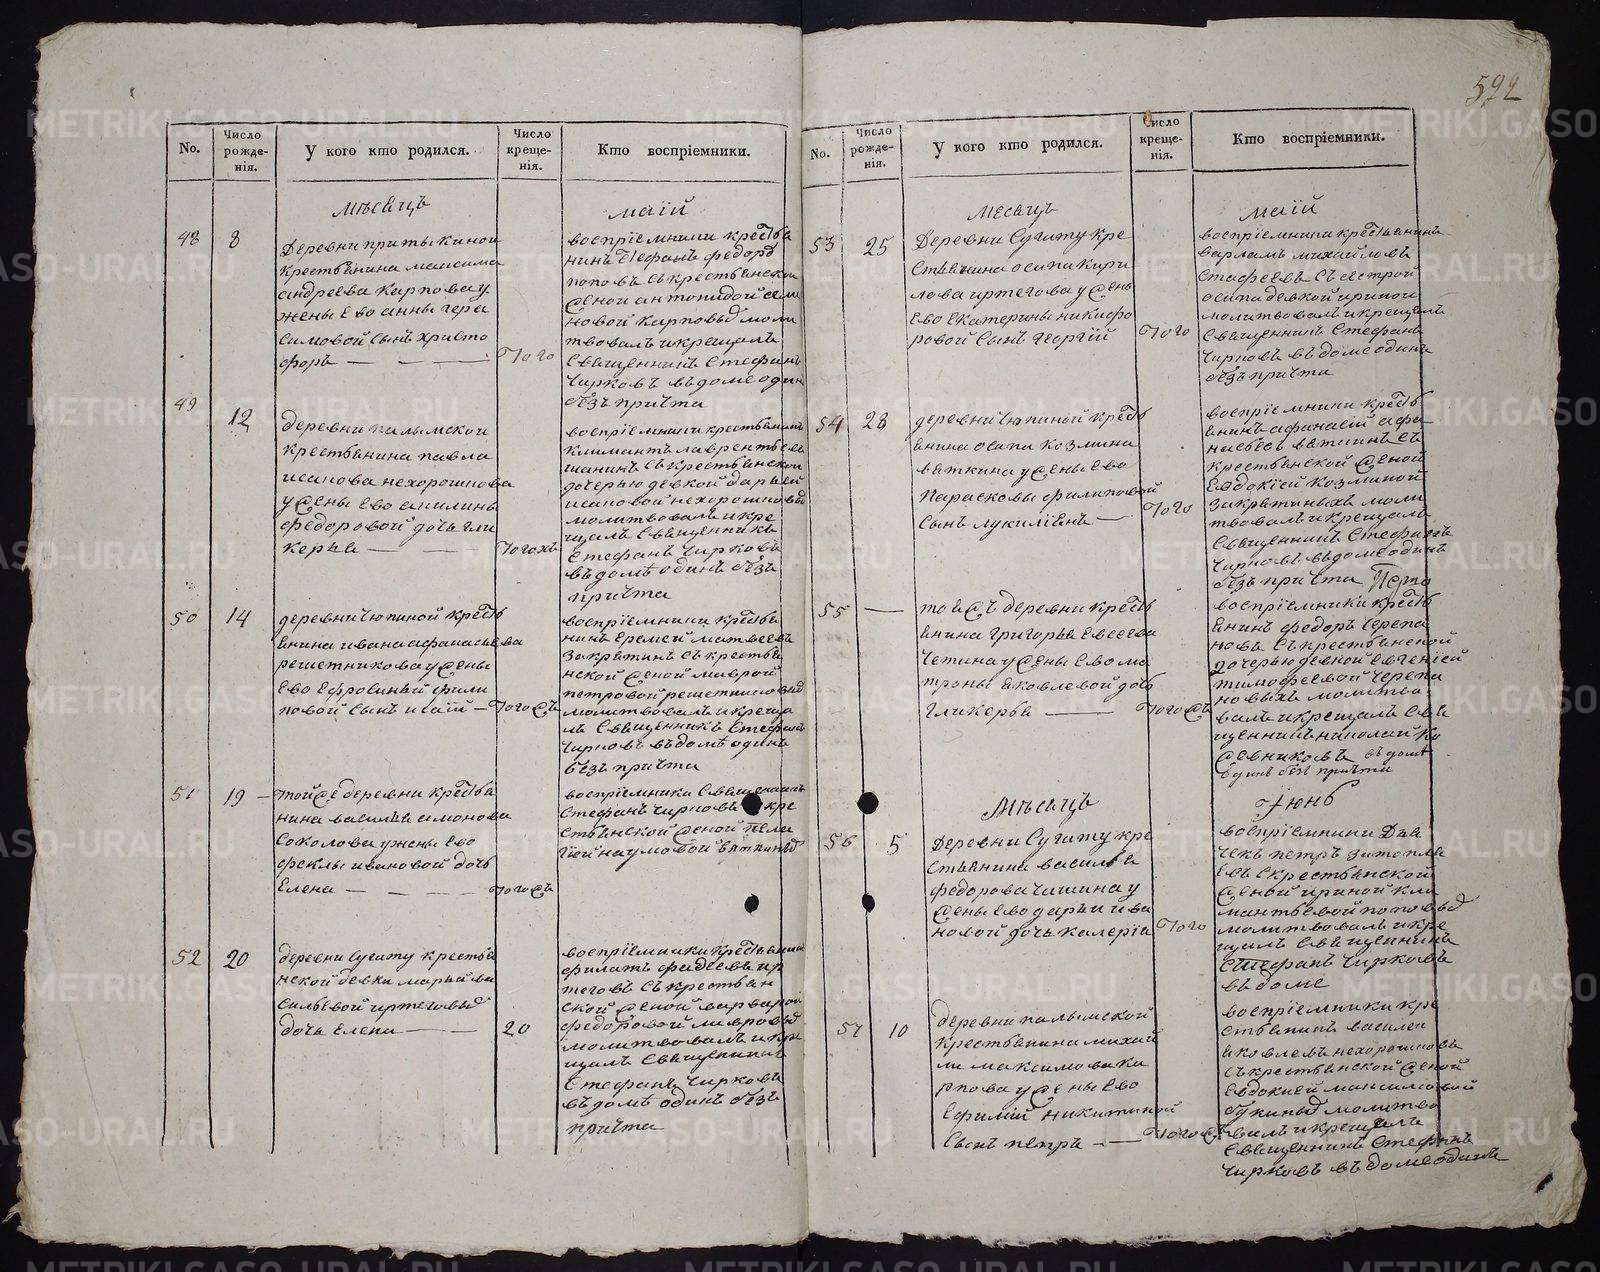 592
No.
Число рожде-нія.
У кого кто родился.
Число креще-нія.
Кто воспріемники.
мѣсяцъ
маій
48
8
деревни притыкиной
крестьянина максима
андреева карпова у
жены ево анны гера
симовой сынъ христо
форъ
Того
воспріемники крестья
нинъ стефанъ федоро
поповъ съ крестьянской
женой антонидой семи
новой карповыд моли
твовалъ и крещалъ
священникъ стефанъ
Чирковъ въ доме один
безъ причта
49
12
деревни палымской
крестьянина павла
исакова нехорошкова
у жены ево
федоровой дочь гли
керья
Тогожъ
воспріемники крестьянинъ
климантъ лаврентьевъ
съ крестьянской
дочерью девкой дарьей
исаковой нехорошковыд
молитвовалъ и кре
щалъ священникъ
Стефанъ Чирковъ
въ домѣ одинъ безъ
причта
50
14
деревни чюпиной кресть
янина ивана афанасьева
решетникова у жены
ево ефросиньи фили
повой сынъ исаій
Тогожъ
воспріемники крестья
нинъ еремей матвеевъ
закрятинъ съ крестья
нской женой маврой
петровой решетниковыд
молитвовалъ и креща
лъ священникъ Стефанъ
Чирковъ въ домѣ одинъ
безъ причта
51
19
той же деревни крестья
нина василья симонова
Соколова у жены ево
феклы ивановой дочь
Елена
тогожъ
воспріемники священникъ
Стефанъ Чирковъ кре
стьянской женой пела
гіей наумовой вяткиныд
52
20
деревни Сугату крестья
нской девки марьи ва
сильевой иртеговыд
дочь Елена
20
воспріемники крестьянинъ
филатъ фадеевъ ир
теговъ съ крестьян
ской женой варварой
федоровой лавровыд
молитвовалъ и кре
щалъ священникъ
Стефанъ Чирковъ
въ домѣ одинъ безъ
причта
No.
Число рожде-нія.
У кого кто родился.
Число креще-нія.
Кто воспріемники.
месяцъ
маій
53
25
Деревни Сугату кре
стьянина осипа кири
лова иртегова у жены
ево екатерины никифо
ровой сынъ георгій
Того
воспріемники крестьянинъ
варламъ михайловъ
Стафеевъ съ сестрой
осипа девкой ириной
молитвовалъ и крещалъ
священникъ Стефанъ
Чирковъ въ доме одинъ
безъ причта
54
28
деревни чюпиной кресть
янина осипа козмина
вяткина у жены ево
Парасковьи филиповой
сынъ лукиліянъ
Того
воспріемники кресть
янинъ афанасій афа
насьевъ вяткинъ съ
крестьянской женой
Евдокіей козминой
закрятиныхъ моли
твовалъ и крещалъ
священникъ Стефанъ
Чирковъ въ доме одинъ
безъ причта
55
тояжъ деревни кресть
янина григорья евсеева
четина у жены ево ма
троны яковлевой дочь
гликерья
Тогожъ
воспріемники кресть
янинъ федоръ черепа
новъ съ крестьянской
дочерью девкой евгеніей
тимофеевой черепа
новыхъ молитво
валъ и крещалъ свя
щенникъ николай ко
жевниковъ въ домѣ
одинъ безъ причта
мѣсяцъ
Іюнь
56
5
деревни Сугату кре
стьянина василья
федорова чашина у
жены ево дарьи ива
новой дочь калерія
Того
воспріемники дья
чекъ петръ затопля
евъ с крестьянской
женой ириной кли
мантьевой поповыд
молитвовалъ и кре
щалъ священникъ
Стефанъ Чирковъ
въ доме
57
10
деревни палымской
крестьянина михай
ли максимова ка
рпова у жены ево
ефиміи никитиной
сынъ петръ
Тогожъ
воспріемники кре
стьянинъ василеи
яковлевъ нехорошковъ
съ крестьянской женой
Евдокией максимовой
букиныд молитво
валъ и крещалъ
священникъ Стефанъ
Чирковъ въ доме одинъ